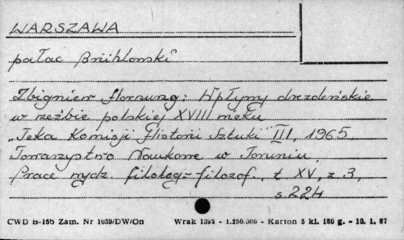 WARSZAWA
pałac Brühlowski
Zbigniew Hornung: Wpływy drezdeńskie
w rzeźbie polskiej XVIII wieku
„Teka Komisji Historii Sztuki" III, 1965
Towarzystwo Naukowe w Toruniu.
Prace wydz. filolog-filozof., t XV, z 3,
s 224
CWD B-155 Zam. Nr 1039/DW/On Wrak 1394 - 1.250.000 - Karton 5 kl. 180 g. - 10. 1. 67